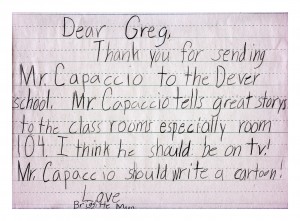 Dear Greg,
Thank you for sending
Mr. Capaccio to the Dever
school. Mr. Capaccio tells great storys
to the class rooms especially room
104. I think he should be on tv!
Mr. Capaccio should write a cartoon!
Love